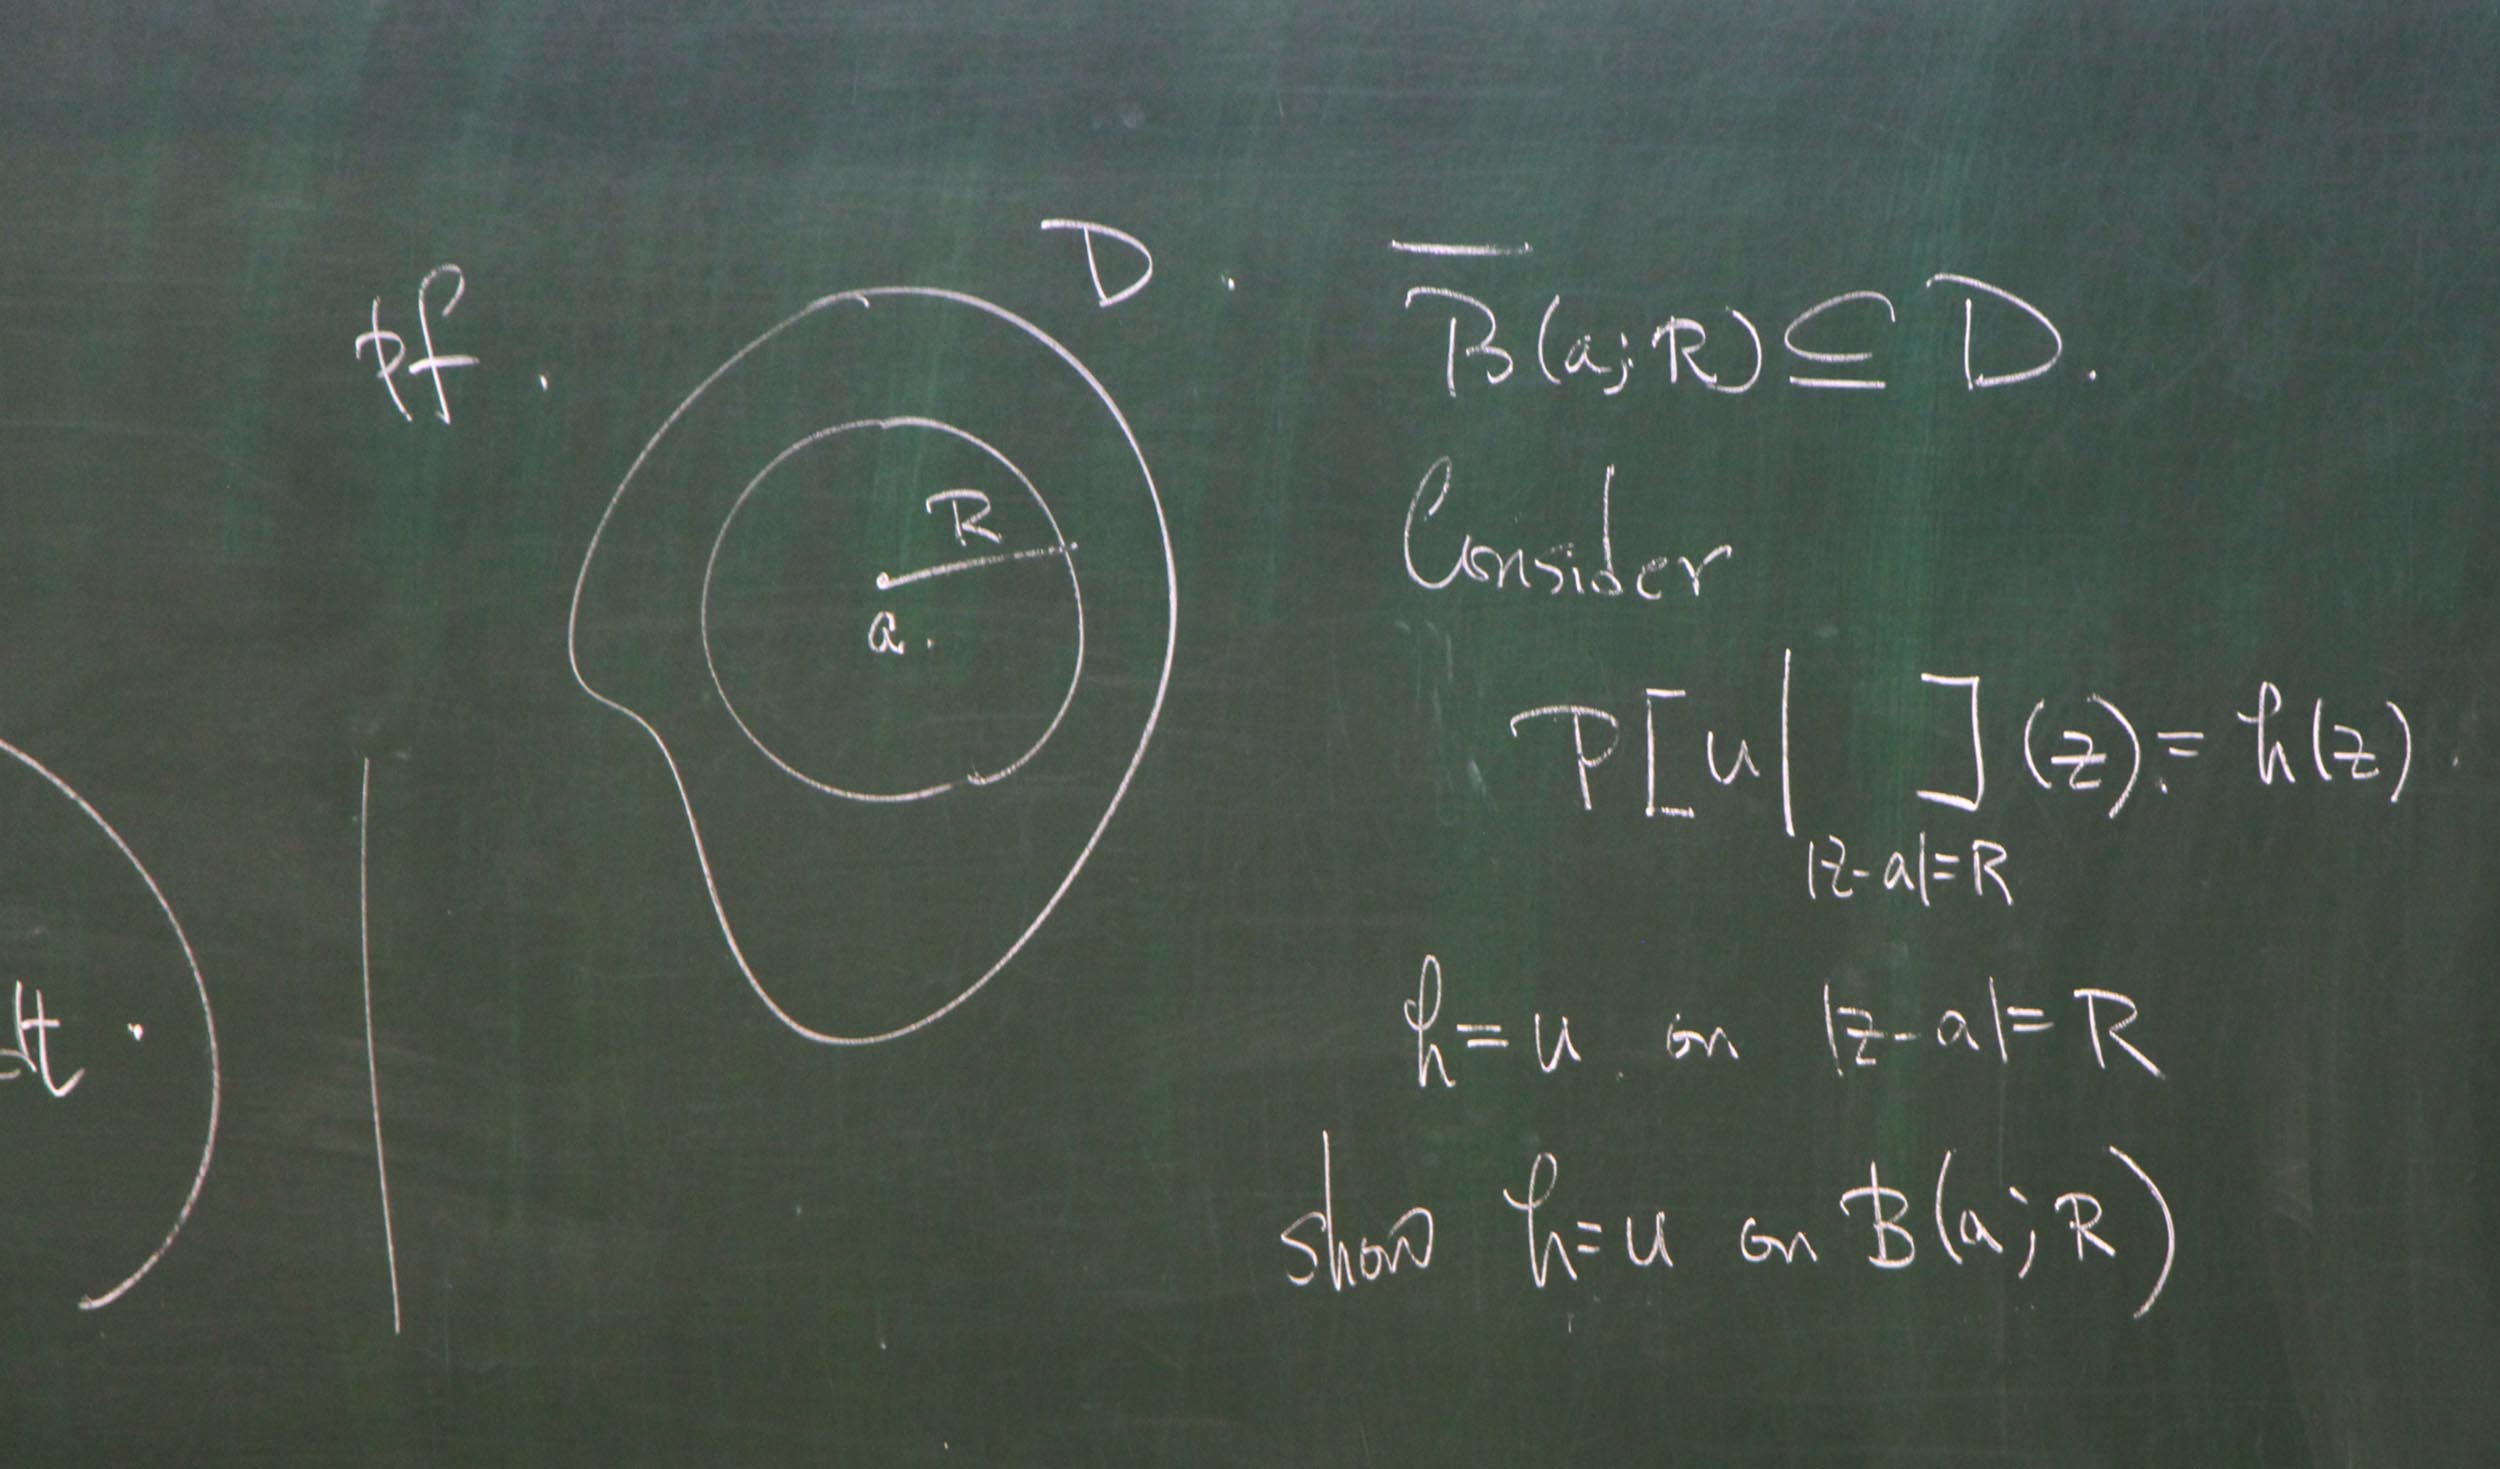 pf.
D.
R
a.
dt.
B̅(a;R)⊆D.
Consider
P[u|_{|z-a|=R}](z)=h(z).
h=u on |z-a|=R
show h=u on B(a;R)